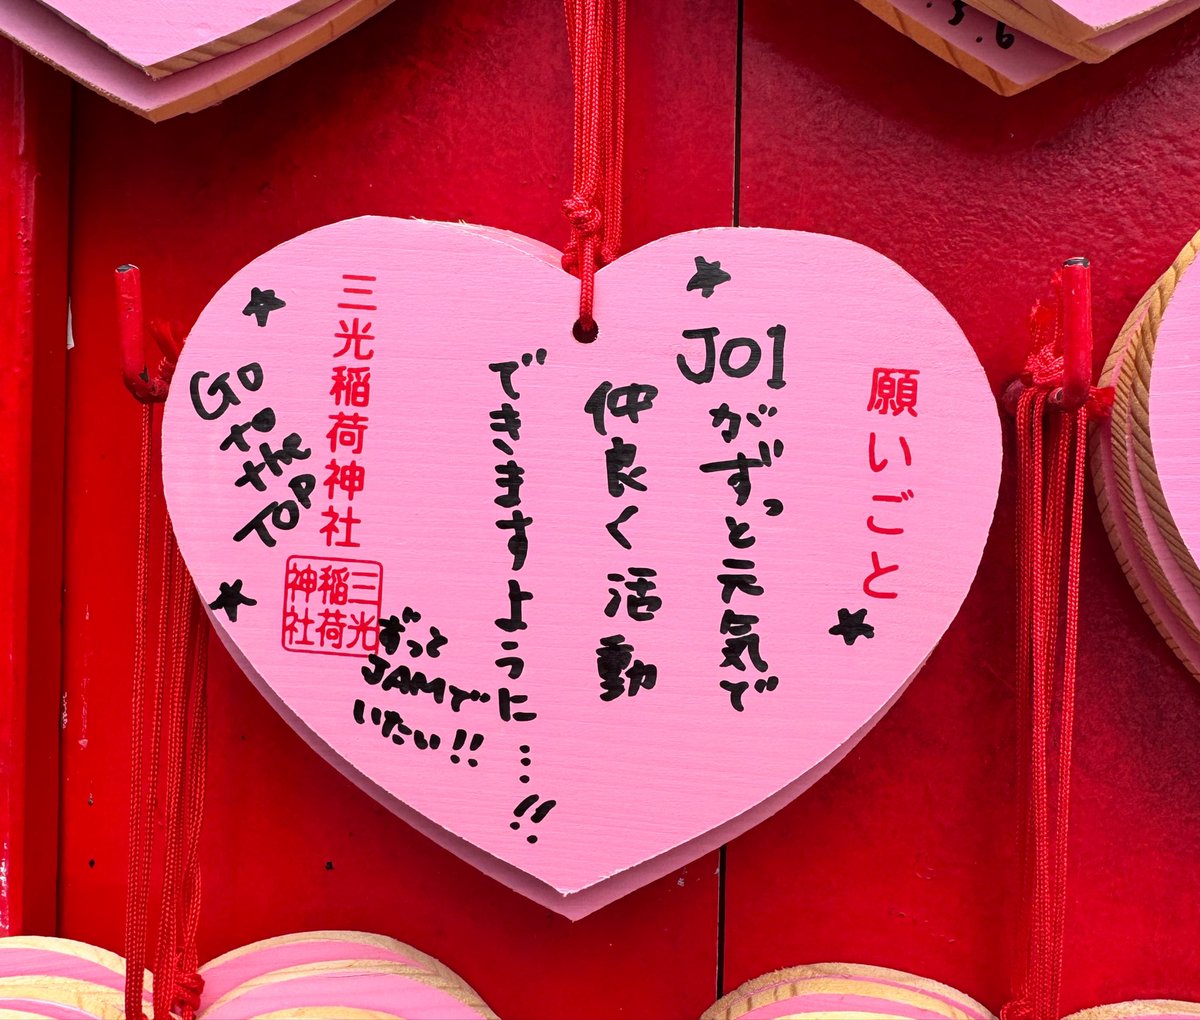 願いごと
JO1がずっと元気で
仲良く活動
できますように…!!
ずっと
JAMで
いたい!!
三光稲荷神社
三光
稲荷
神社
Go
to the
TOP
.5.6